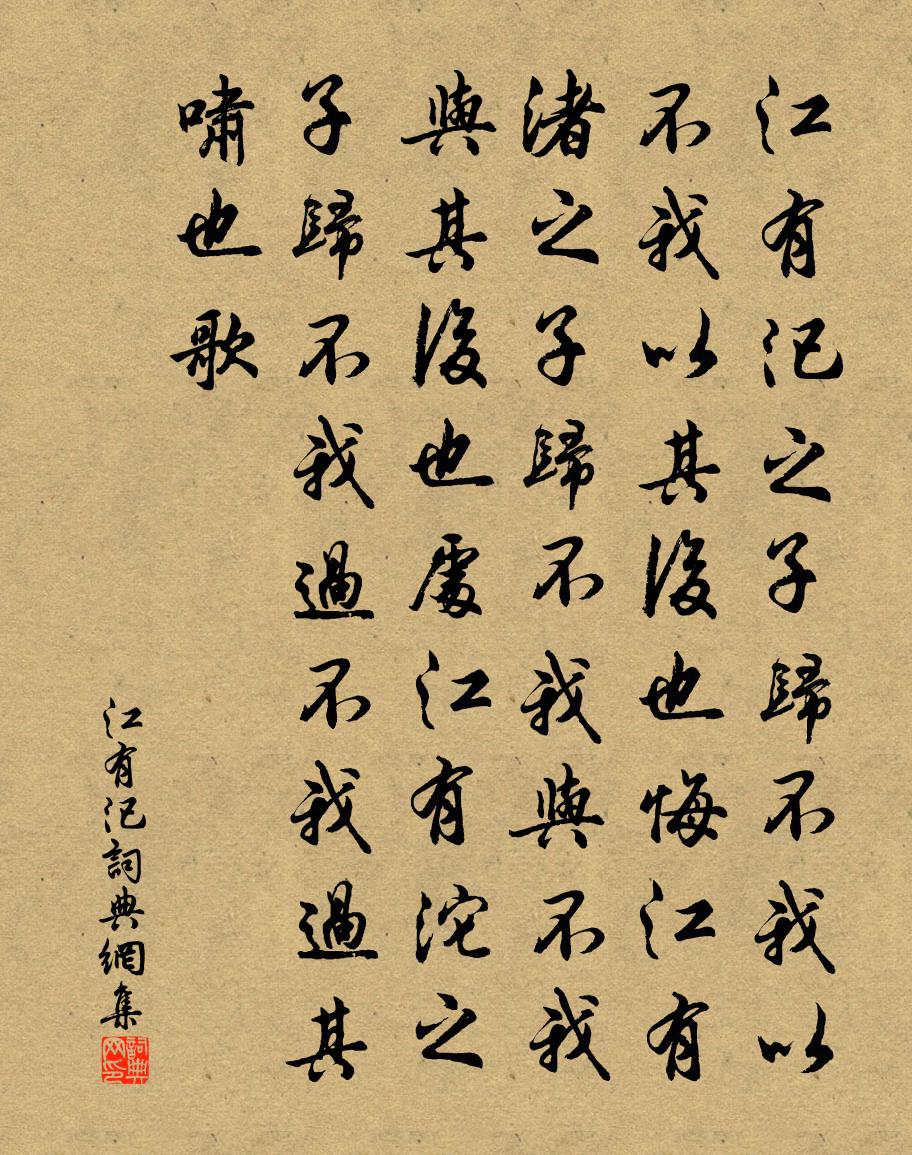 江有汜之子歸不我以
不我以其後也悔江有
渚之子歸不我與不我
與其後也處江有沱之
子歸不我過不我過其
嘯也歌
江有汜詞典網集
詞典
网印